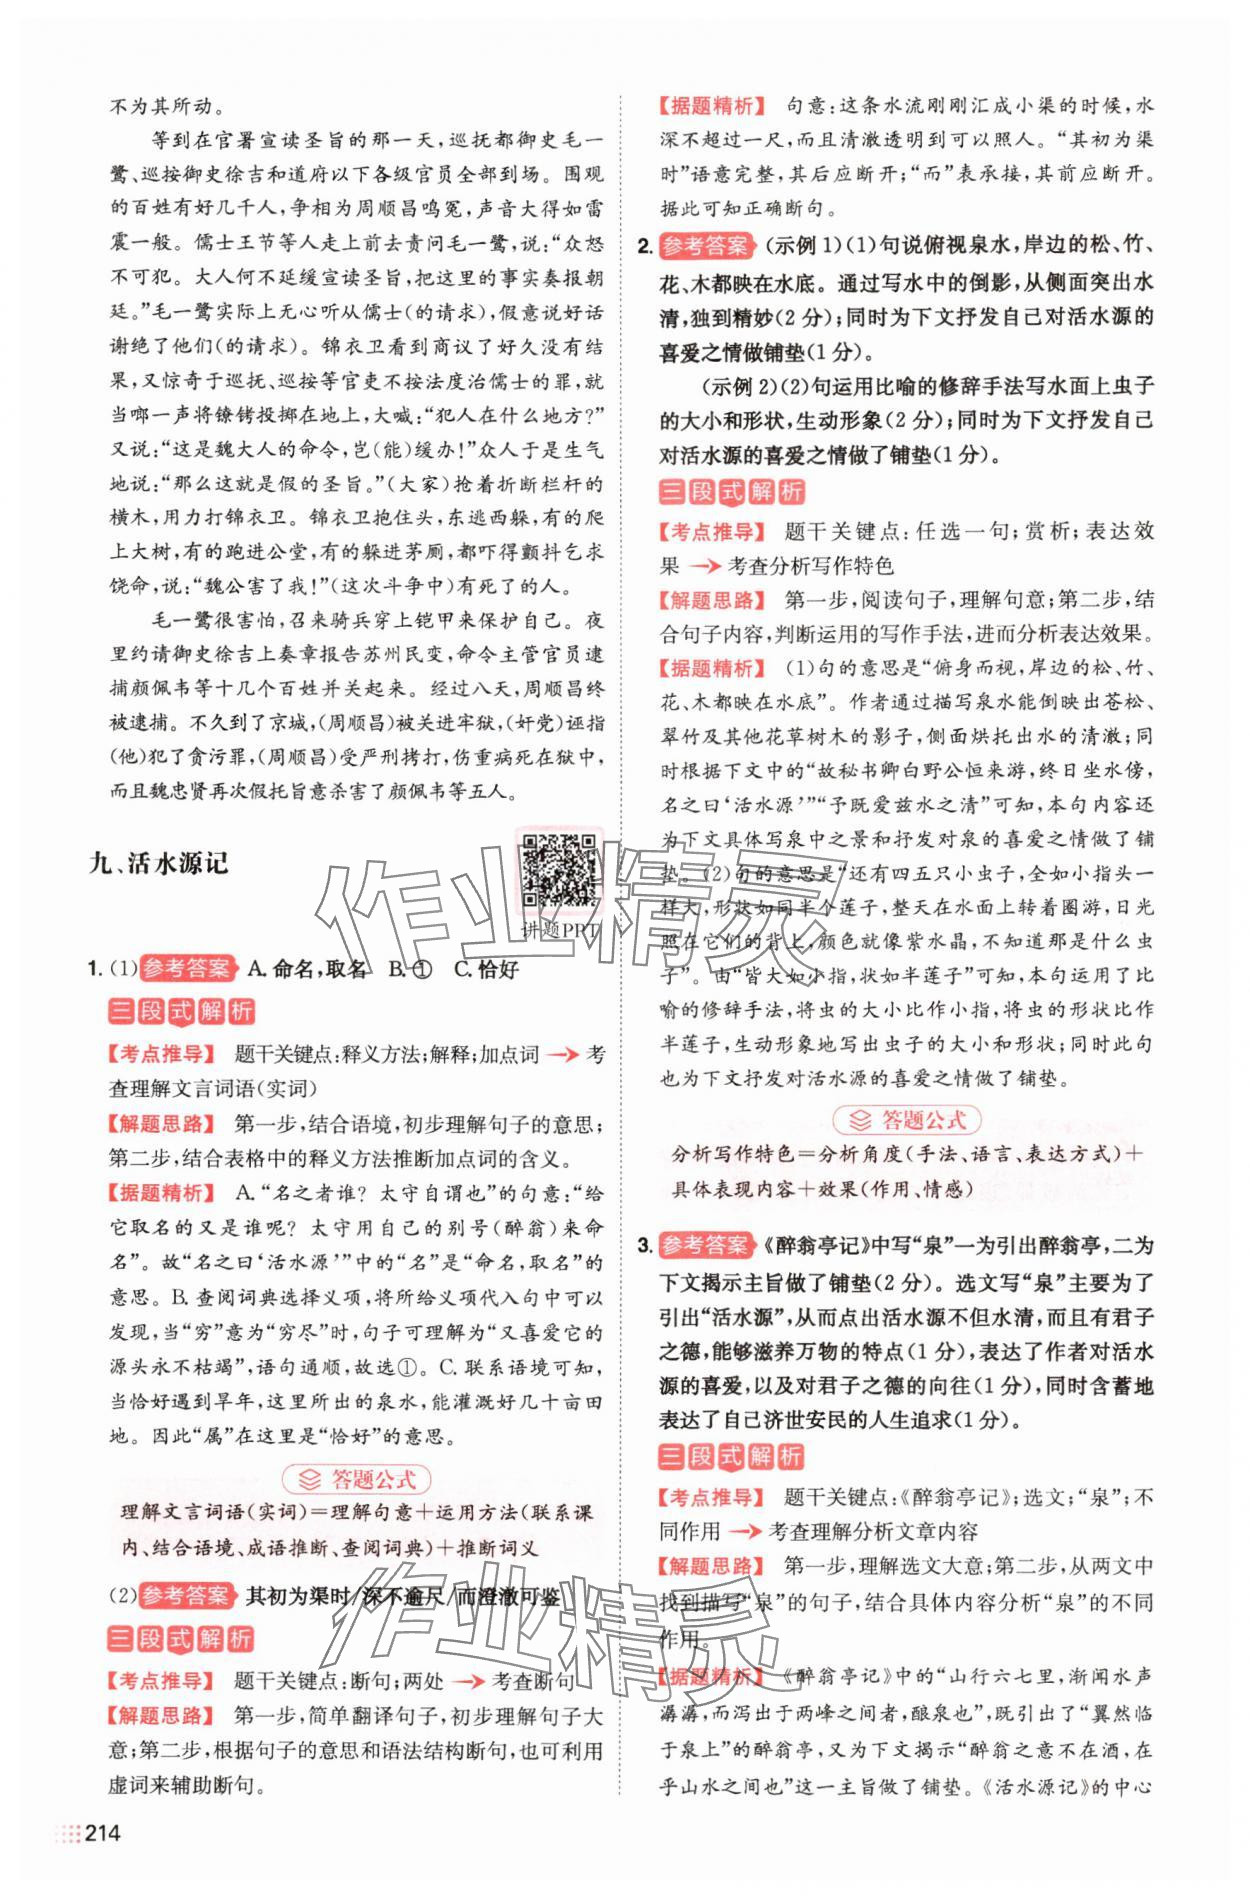 不为其所动。
等到在官署宣读圣旨的那一天，巡抚都御史毛一
鹭、巡按御史徐吉和道府以下各级官员全部到场。围观
的百姓有好几千人，争相为周顺昌鸣冤，声音大得如雷
震一般。儒士王节等人走上前去责问毛一鹭，说：“众怒
不可犯。大人何不延缓宣读圣旨，把这里的事实奏报朝
廷。”毛一鹭实际上无心听从儒士(的请求)，假意说好话
谢绝了他们(的请求)。锦衣卫看到商议了好久没有结
果，又惊奇于巡抚、巡按等官吏不按法度治儒士的罪，就
当啷一声将镣铐投掷在地上，大喊：“犯人在什么地方？”
又说：“这是魏大人的命令，岂(能)缓办！”众人于是生气
地说：“那么这就是假的圣旨。”(大家)抢着折断栏杆的
横木，用力打锦衣卫。锦衣卫抱住头，东逃西躲，有的爬
上大树，有的跑进公堂，有的躲进茅厕，都吓得颤抖乞求
饶命，说：“魏公害了我！”(这次斗争中)有死了的人。
毛一鹭很害怕，召来骑兵穿上铠甲来保护自己。夜
里约请御史徐吉上奏章报告苏州民变，命令主管官员逮
捕颜佩韦等十几个百姓并关起来。经过八天，周顺昌终
被逮捕。不久到了京城，(周顺昌)被关进牢狱，(奸党)诬指
(他)犯了贪污罪，(周顺昌)受严刑拷打，伤重病死在狱中，
而且魏忠贤再次假托旨意杀害了颜佩韦等五人。
九、活水源记
讲题PPT
1. (1)参考答案 A. 命名，取名 B. ① C. 恰好
三段式解析
【考点推导】 题干关键点：释义方法；解释；加点词→考
查理解文言词语(实词)
【解题思路】 第一步，结合语境，初步理解句子的意思；
第二步，结合表格中的释义方法推断加点词的含义。
【据题精析】 A. “名之者谁？太守自谓也”的句意：“给
它取名的又是谁呢？太守用自己的别号(醉翁)来命
名”。故“名之曰‘活水源’”中的“名”是“命名，取名”的
意思。B. 查阅词典选择义项，将所给义项代入句中可以
发现，当“穷”意为“穷尽”时，句子可理解为“又喜爱它的
源头永不枯竭”，语句通顺，故选①。C. 联系语境可知，
当恰好遇到旱年，这里所出的泉水，能灌溉好几十亩田
地。因此“属”在这里是“恰好”的意思。
答题公式
理解文言词语(实词)＝理解句意＋运用方法(联系课
内、结合语境、成语推断、查阅词典)＋推断词义
(2)参考答案 其初为渠时/深不逾尺/而澄澈可鉴
三段式解析
【考点推导】 题干关键点：断句；两处→考查断句
【解题思路】 第一步，简单翻译句子，初步理解句子大
意；第二步，根据句子的意思和语法结构断句，也可利用
虚词来辅助断句。
214
【据题精析】 句意：这条水流刚刚汇成小渠的时候，水
深不超过一尺，而且清澈透明到可以照人。“其初为渠
时”语意完整，其后应断开；“而”表承接，其前应断开。
据此可知正确断句。
2. 参考答案 (示例1)(1)句说俯视泉水，岸边的松、竹、
花、木都映在水底。通过写水中的倒影，从侧面突出水
清，独到精妙(2分)；同时为下文抒发自己对活水源的
喜爱之情做铺垫(1分)。
(示例2)(2)句运用比喻的修辞手法写水面上虫子
的大小和形状，生动形象(2分)；同时为下文抒发自己
对活水源的喜爱之情做了铺垫(1分)。
三段式解析
【考点推导】 题干关键点：任选一句；赏析；表达效
果→考查分析写作特色
【解题思路】 第一步，阅读句子，理解句意；第二步，结
合句子内容，判断运用的写作手法，进而分析表达效果。
【据题精析】 (1)句的意思是“俯身而视，岸边的松、竹、
花、木都映在水底”。作者通过描写泉水能倒映出苍松、
翠竹及其他花草树木的影子，侧面烘托出水的清澈；同
时根据下文中的“故秘书卿白野公恒来游，终日坐水傍，
名之曰‘活水源’”“予既爱兹水之清”可知，本句内容还
为下文具体写泉中之景和抒发对泉的喜爱之情做了铺
垫。(2)句的意思是“还有四五只小虫子，全如小指头一
样大，形状如同半个莲子，整天在水面上转着圈游，日光
照在它们的背上，颜色就像紫水晶，不知那是什么虫
子”。由“皆大如小指，状如半莲子”可知，本句运用了比
喻的修辞手法，将虫的大小比作小指，将虫的形状比作
半莲子，生动形象地写出虫子的大小和形状；同时此句
也为下文抒发对活水源的喜爱之情做了铺垫。
答题公式
分析写作特色＝分析角度(手法、语言、表达方式)＋
具体表现内容＋效果(作用、情感)
3. 参考答案 《醉翁亭记》中写“泉”一为引出醉翁亭，二为
下文揭示主旨做了铺垫(2分)。选文写“泉”主要为了
引出“活水源”，从而点出活水源不但水清，而且有君子
之德，能够滋养万物的特点(1分)，表达了作者对活水
源的喜爱，以及对君子之德的向往(1分)，同时含蓄地
表达了自己济世安民的人生追求(1分)。
三段式解析
【考点推导】 题干关键点：《醉翁亭记》；选文；“泉”；不
同作用→考查理解分析文章内容
【解题思路】 第一步，理解选文大意；第二步，从两文中
找到描写“泉”的句子，结合具体内容分析“泉”的不同
作用。
【据题精析】 《醉翁亭记》中的“山行六七里，渐闻水声
潺潺，而泻出于两峰之间者，酿泉也”，既引出了“翼然临
于泉上”的醉翁亭，又为下文揭示“醉翁之意不在酒，在
乎山水之间也”这一主旨做了铺垫。《活水源记》的中心
作业精灵
作业精灵